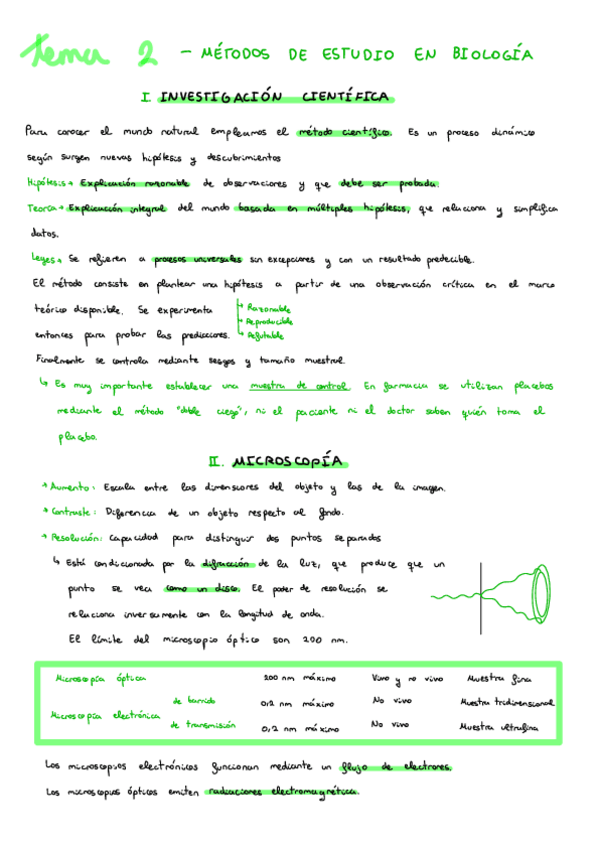 Tema 2 - MÉTODOS DE ESTUDIO EN BIOLOGÍA
I. INVESTIGACIÓN CIENTÍFICA
Para conocer el mundo natural empleamos el método científico. Es un proceso dinámico
según surgen nuevas hipótesis y descubrimientos
Hipótesis → Explicación razonable de observaciones y que debe ser probada.
Teoría → Explicación integral del mundo basada en múltiples hipótesis, que relaciona y simplifica
datos.
Leyes → Se refieren a procesos universales sin excepciones y con un resultado predecible.
El método consiste en plantear una hipótesis a partir de una observación crítica en el marco
teórico disponible. Se experimenta → Razonable
→ Reproducible
entonces para probar las predicciones. → Refutable
Finalmente se controla mediante sesgos y tamaño muestral
↳ Es muy importante establecer una muestra de control. En farmacia se utilizan placebos
mediante el método "doble ciego", ni el paciente ni el doctor saben quién toma el
placebo.
II. MICROSCOPÍA
→ Aumento: Escala entre las dimensiones del objeto y las de la imagen.
→ Contraste: Diferencia de un objeto respecto al fondo.
→ Resolución: Capacidad para distinguir dos puntos separados
↳ Está condicionada por la difracción de la luz, que produce que un
punto se vea como un disco. El poder de resolución se
relaciona inversamente con la longitud de onda.
El límite del microscopio óptico son 200 nm.
Microscopía óptica 200 nm máximo Vivo y no vivo Muestra fina
de barrido 0,2 nm máximo No vivo Muestra tridimensional
Microscopía electrónica
de transmisión 0,2 nm máximo No vivo Muestra ultrafina
Los microscopios electrónicos funcionan mediante un flujo de electrones.
Los microscopios ópticos emiten radiaciones electromagnética.